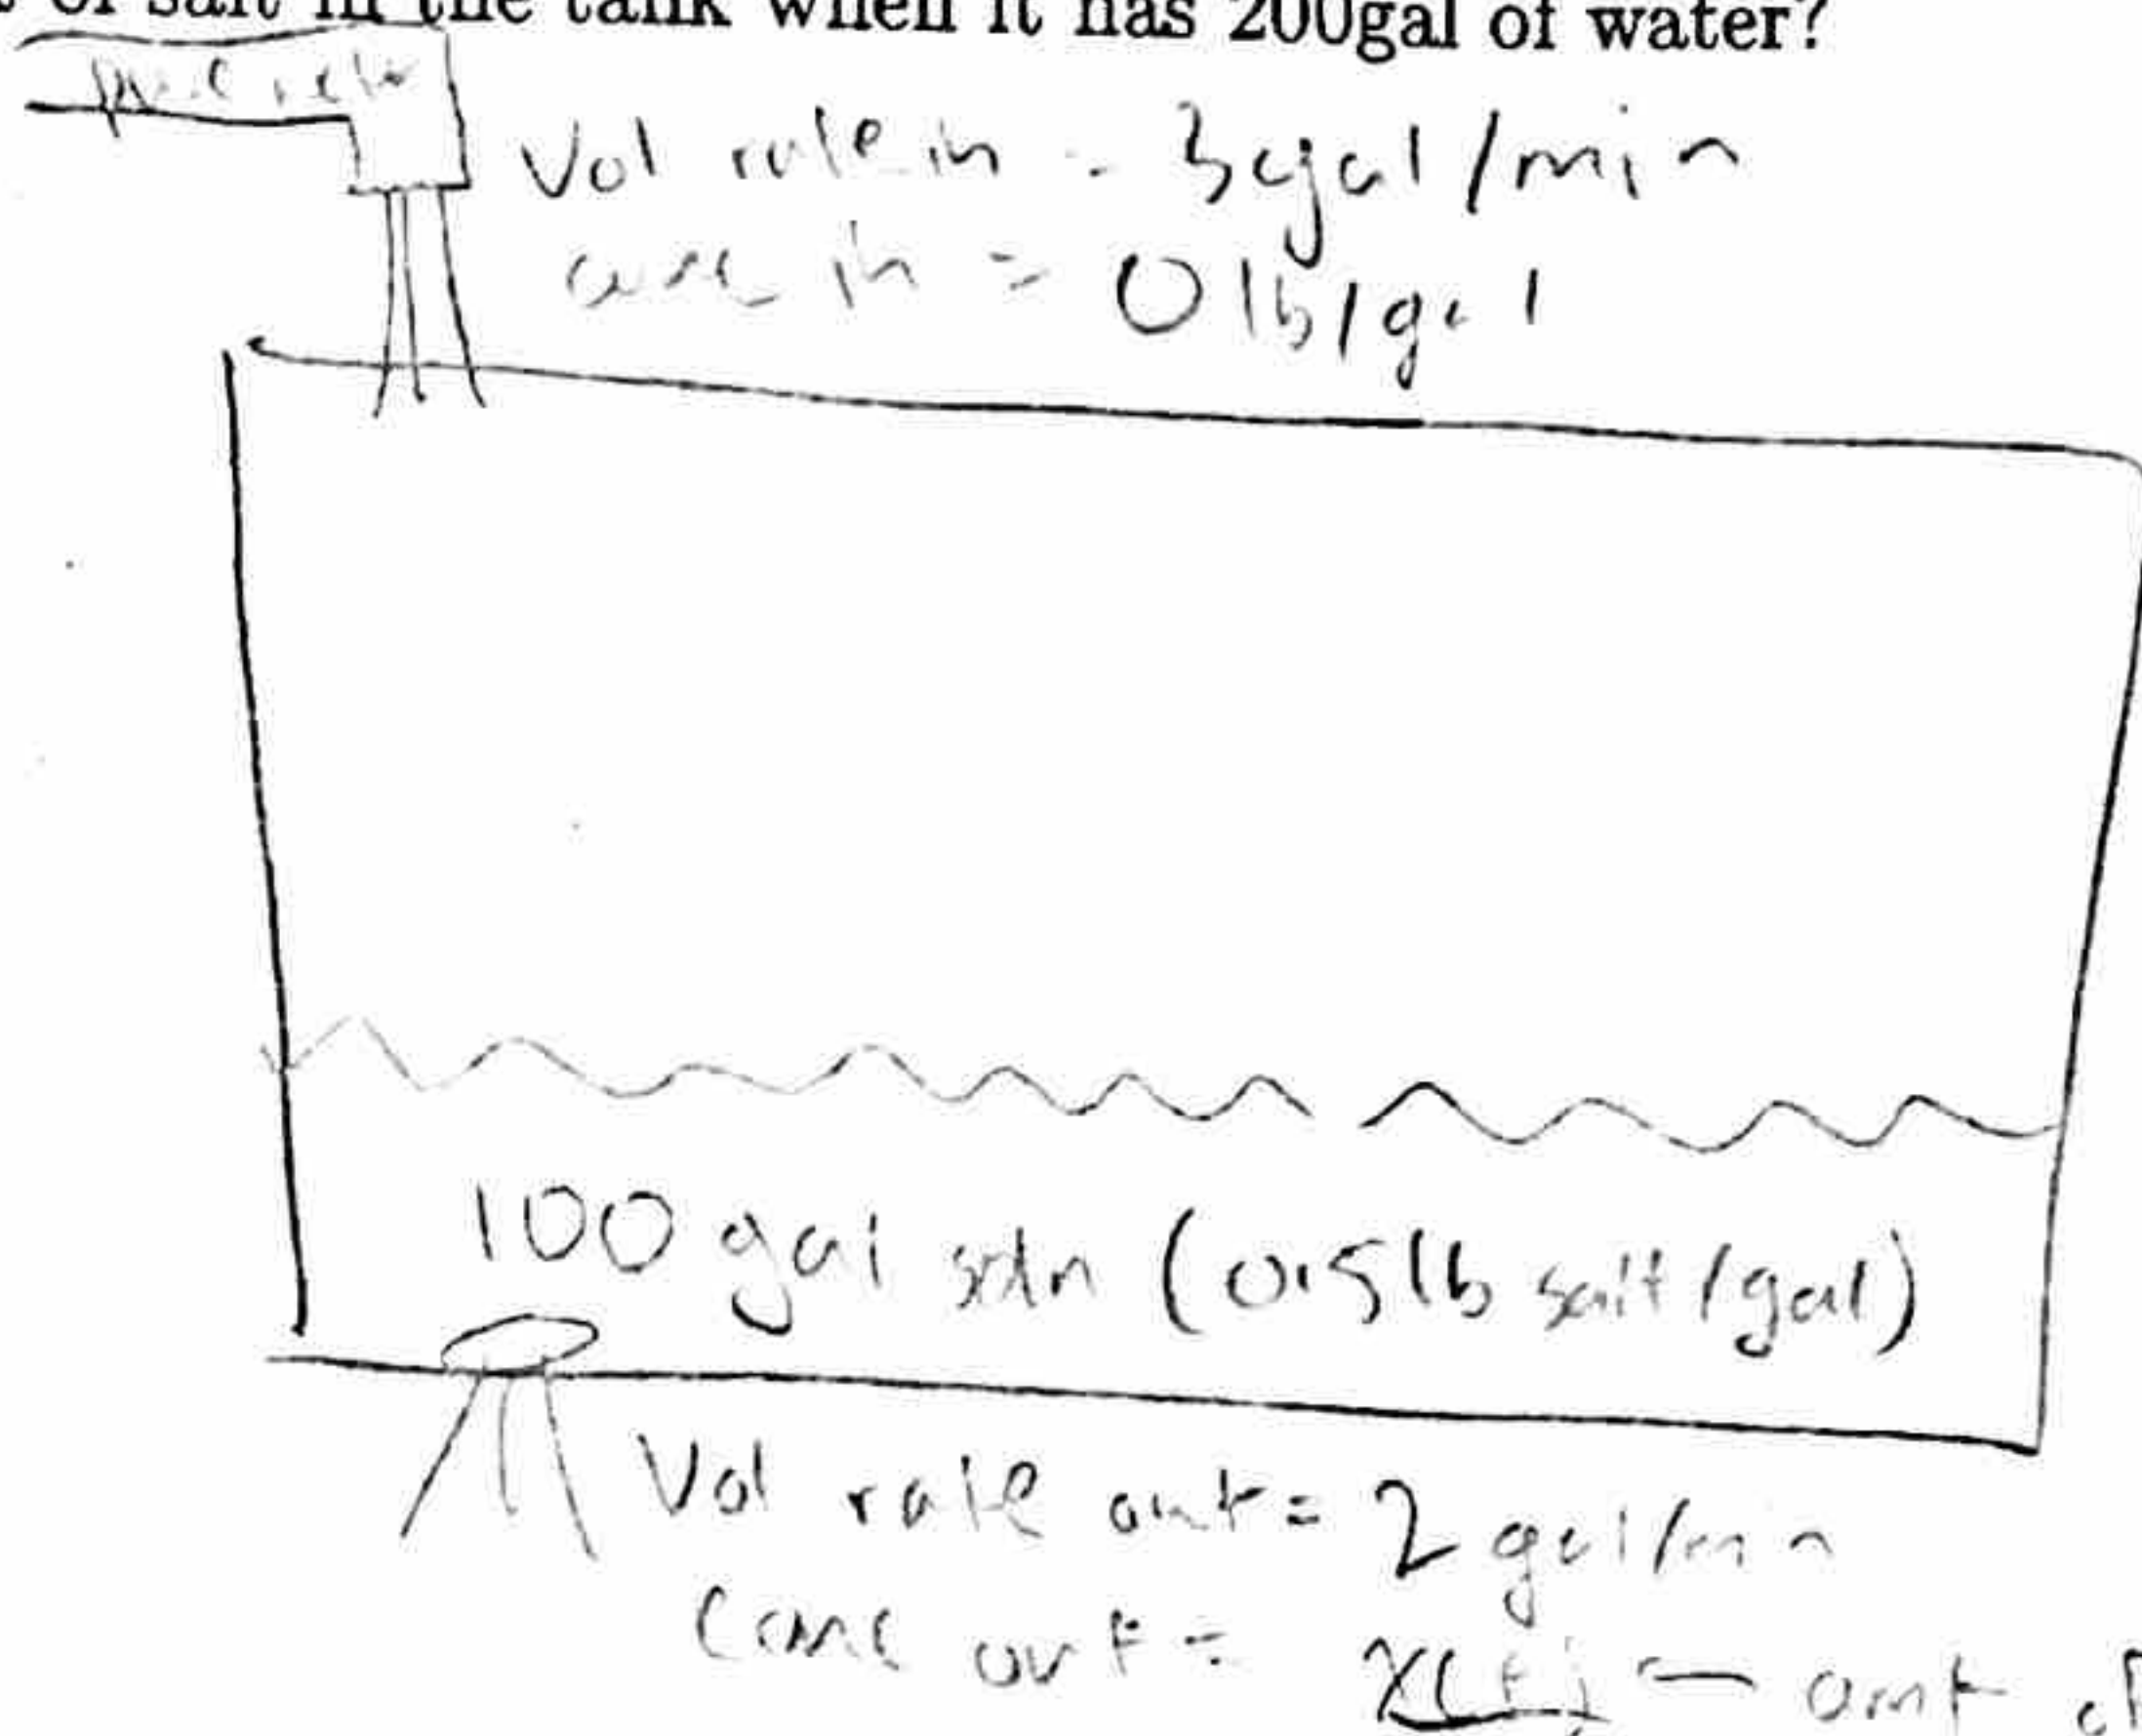 of salt in the tank when it has 200gal of water?
Vol rate in = 3gal/min
conc in = 0 lb/gal
100 gal soln (0.5 lb salt/gal)
Vol rate out = 2 gal/min
Conc out = x(t) — amt of